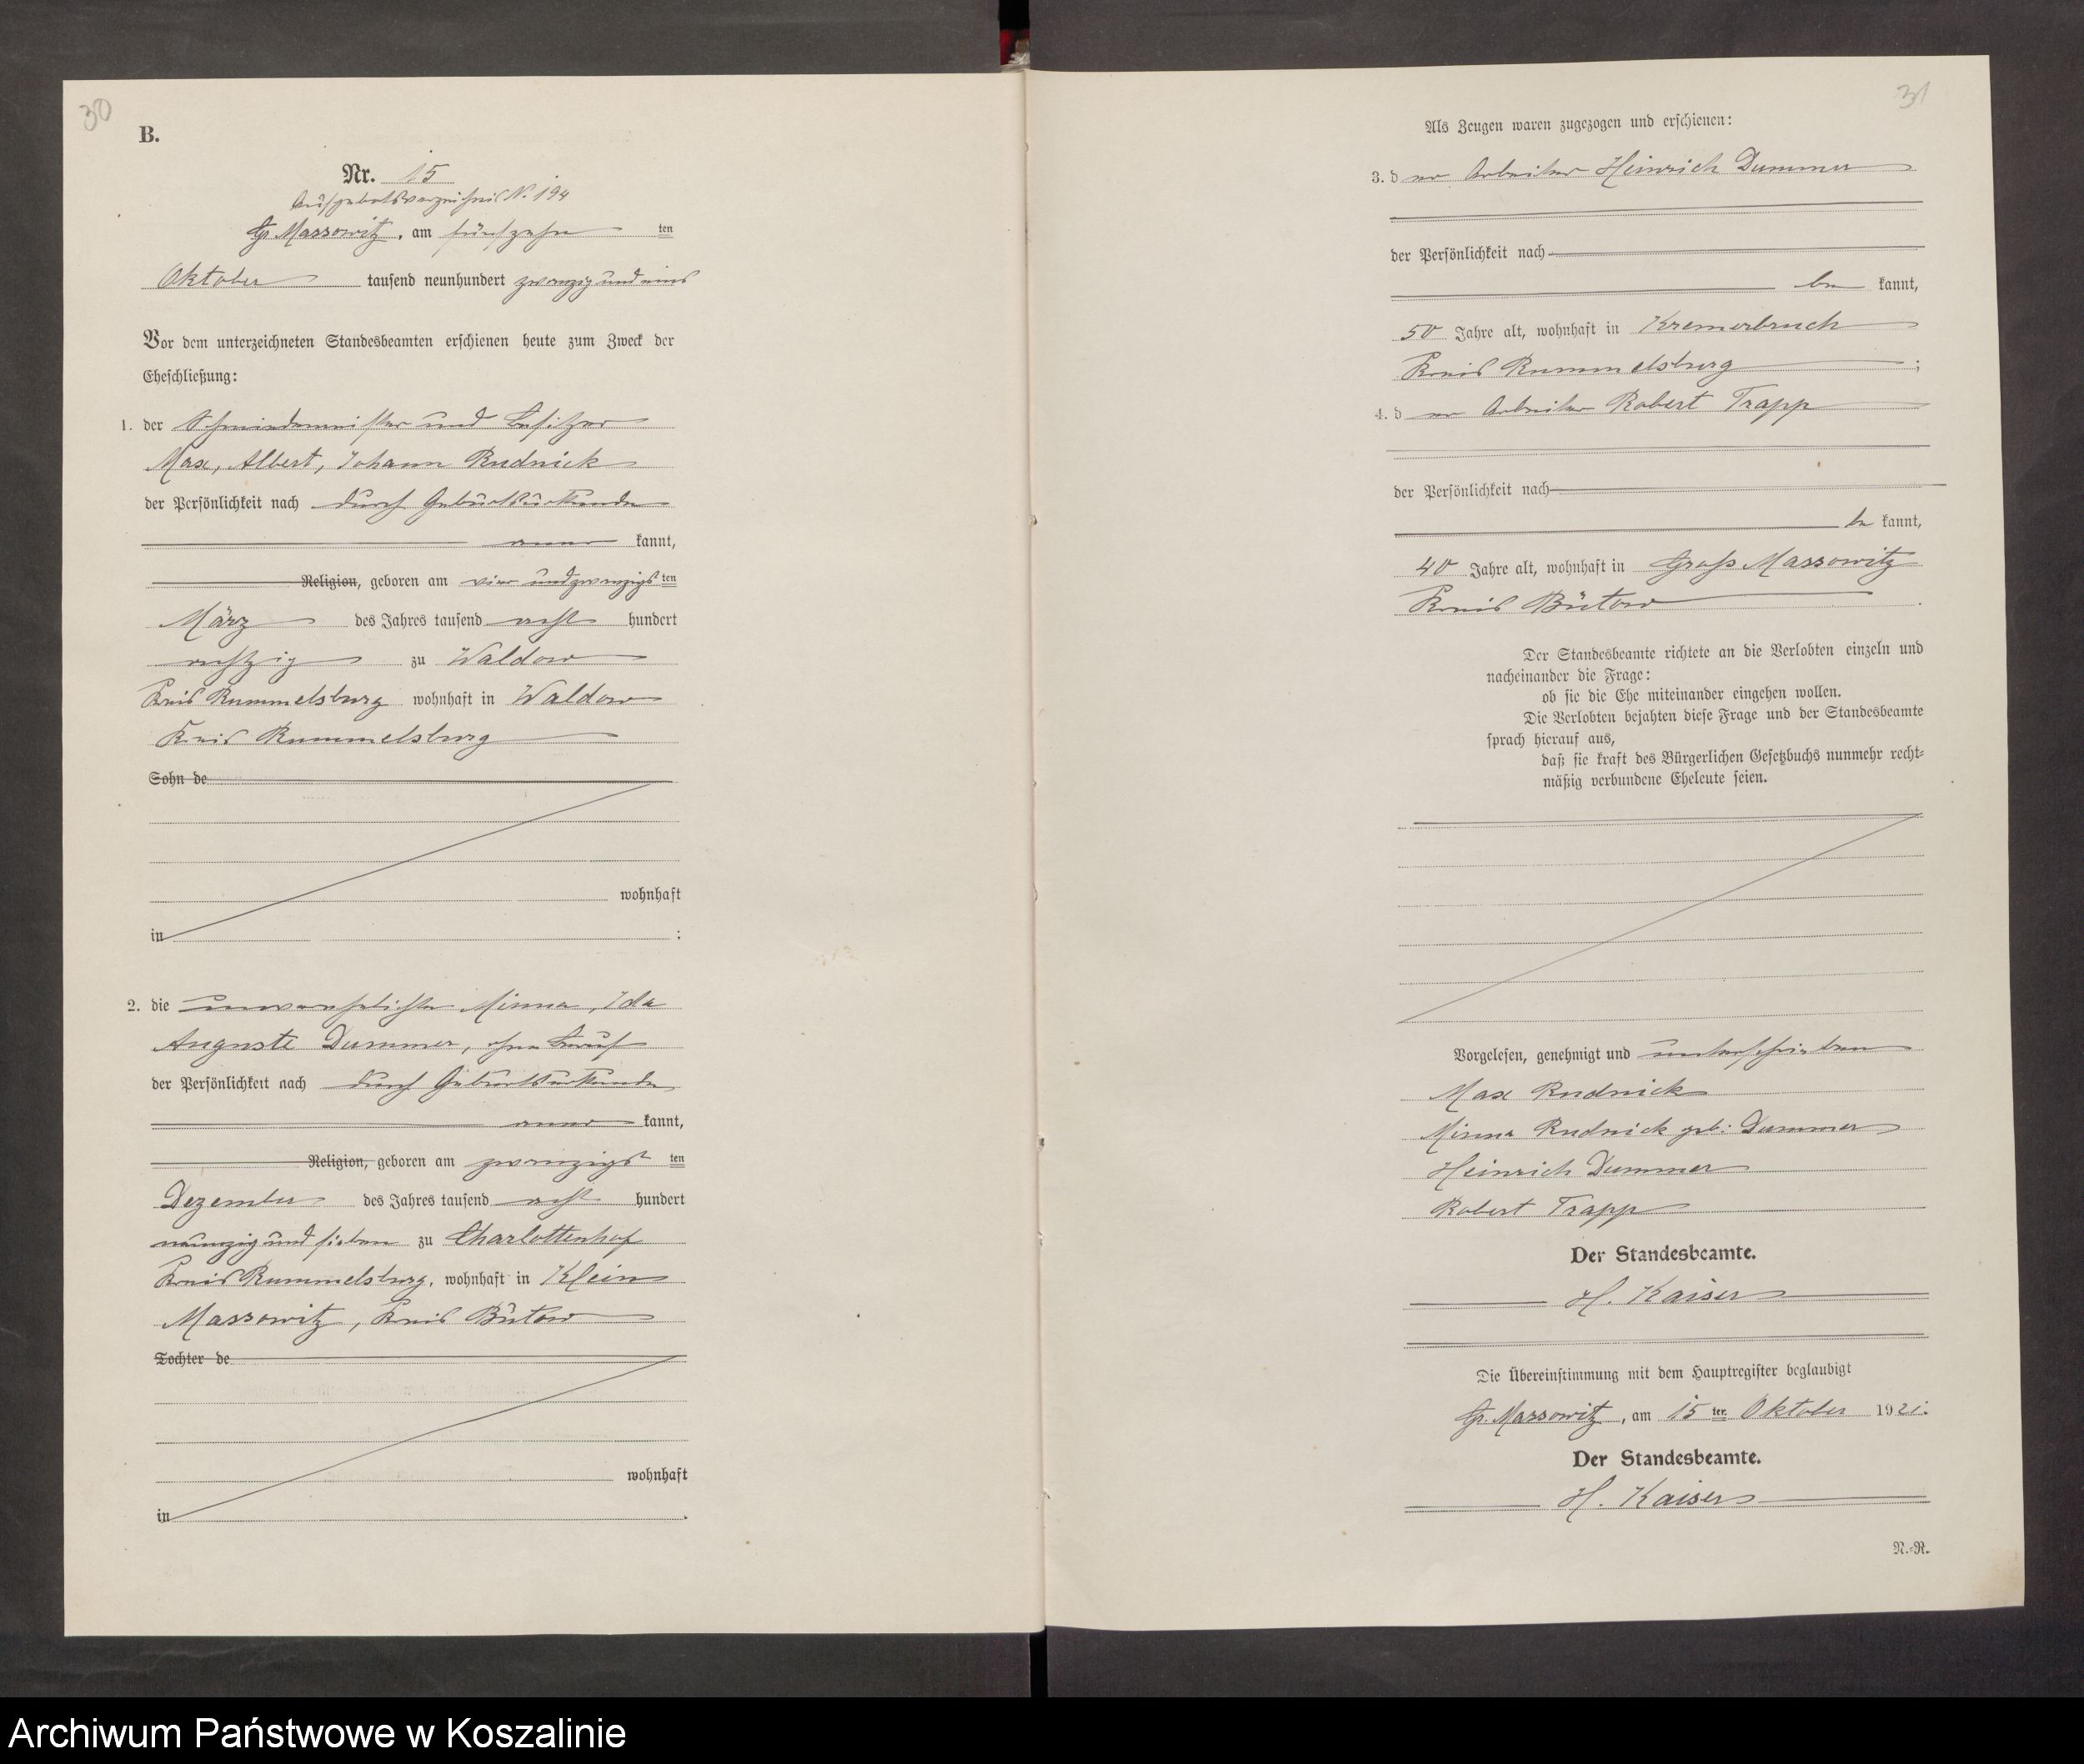 30
B.
Nr. 15
Aufgebotsverzeichnis N. 194
Gr. Massowitz, am fünfzehn ten
Oktober tausend neunhundert zwanzig und eins
Vor dem unterzeichneten Standesbeamten erschienen heute zum Zweck der
Eheschließung:
1. der Schmiedemeister und Besitzer
Max, Albert, Johann Rudnick
der Persönlichkeit nach durch Geburtsurkunde
aner kannt,
Religion, geboren am vier und zwanzigsten
März des Jahres tausend acht hundert
achtzig zu Waldow
Kreis Rummelsburg wohnhaft in Waldow
Kreis Rummelsburg
Sohn de
wohnhaft
in ;
2. die unverehelichte Minna, Ida
Auguste Dummer, ohne Beruf
der Persönlichkeit nach durch Geburtsurkunde
aner kannt,
Religion, geboren am zwanzigst ten
Dezember des Jahres tausend acht hundert
neunzig und sieben zu Charlottenhof
Kreis Rummelsburg, wohnhaft in Klein
Massowitz, Kreis Bütow
Tochter de
wohnhaft
in .
31
Als Zeugen waren zugezogen und erschienen:
3. d er Arbeiter Heinrich Dummer
der Persönlichkeit nach
be kannt,
50 Jahre alt, wohnhaft in Kremerbruch
Kreis Rummelsburg ;
4. d er Arbeiter Robert Trapp
der Persönlichkeit nach
be kannt,
40 Jahre alt, wohnhaft in Groß Massowitz
Kreis Bütow .
Der Standesbeamte richtete an die Verlobten einzeln und
nacheinander die Frage:
ob sie die Ehe miteinander eingehen wollen.
Die Verlobten bejahten diese Frage und der Standesbeamte
sprach hierauf aus,
daß sie kraft des Bürgerlichen Gesetzbuchs nunmehr recht-
mäßig verbundene Eheleute seien.
Vorgelesen, genehmigt und unterschrieben
Max Rudnick
Minna Rudnick geb: Dummer
Heinrich Dummer
Robert Trapp
Der Standesbeamte.
H. Kaiser
Die Übereinstimmung mit dem Hauptregister beglaubigt
Gr. Massowitz, am 15 ten Oktober 1921.
Der Standesbeamte.
H. Kaiser
N.-R.
Archiwum Państwowe w Koszalinie